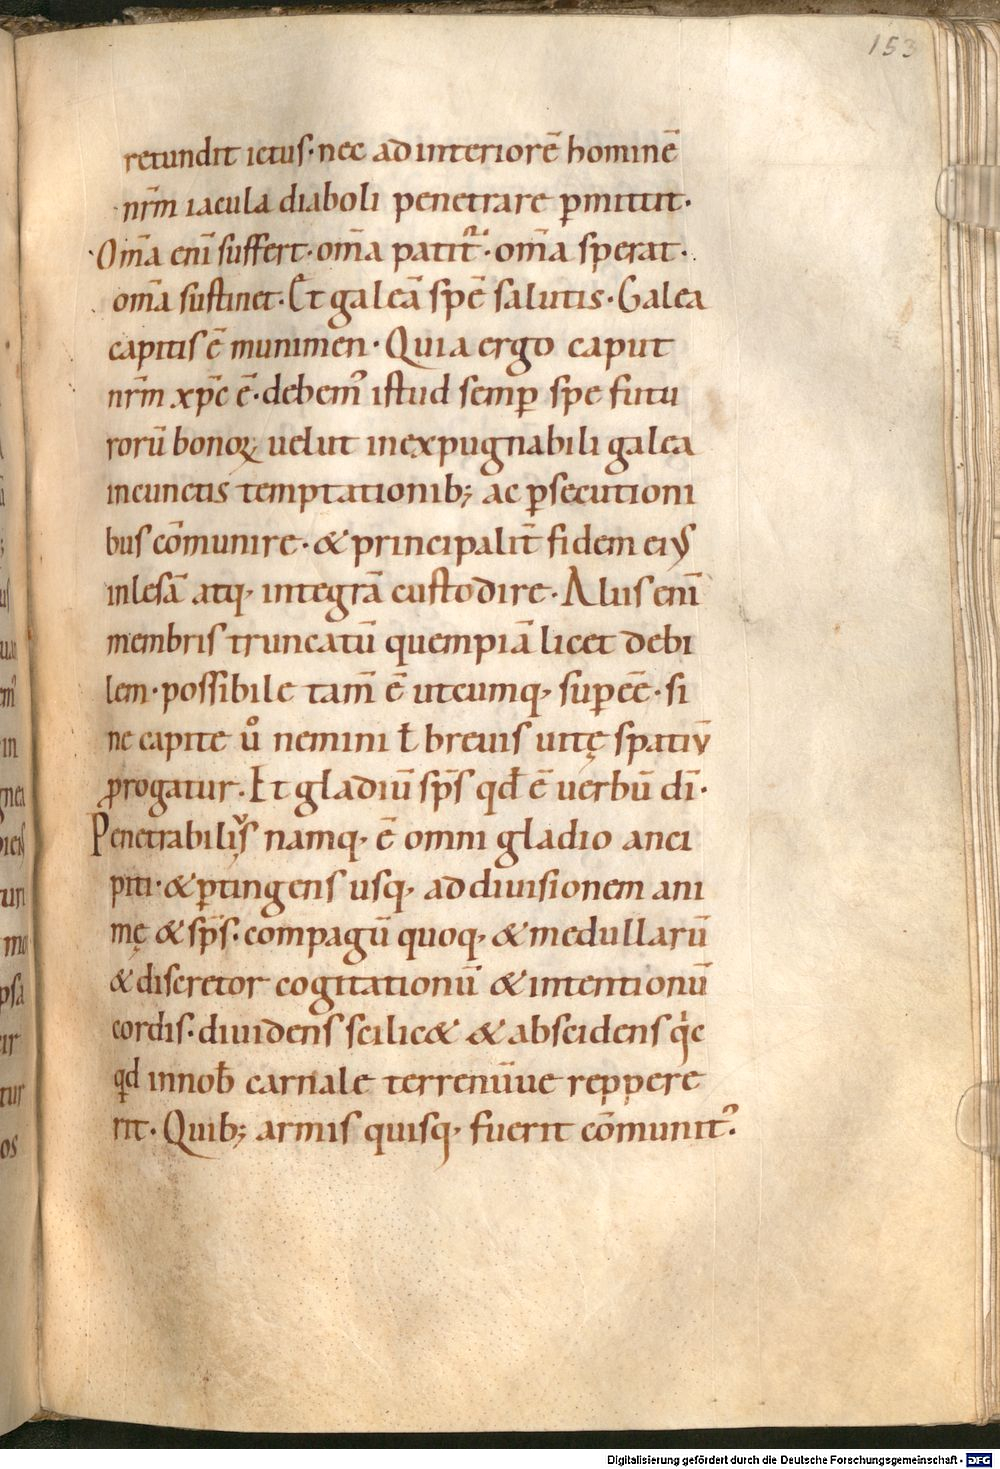 153
retundit ictus· nec ad interiorē hominē
nr̄m iacula diaboli penetrare ꝑmittit·
Om̄a eni̅ suffert· om̄a patit᷑· om̄a sperat·
om̄a sustinet· Et galeā spē salutis· Galea
capitis ē munimen· Quia ergo caput
nr̄m xp̄c ē· debem᾽ istud semꝑ spe futu
rorū bonoꝝ uelut inexpugnabili galea
incunctis temptationib; ac ꝑsecutioni
bus cōmunire· & principalit̄ fidem eiꝰ
inlesā atq, integrā custodire· Aliis eni̅
membris truncatū quempiā licet debi
lem· possibile tam̄ ē utcumq, suꝑeē· si
ne capite ů nemini ł breuis uitę spatiū
ꝓrogatur· Et gladiū sp̄s qđ ē uerbū dī·
Penetrabiliꝰs namq, ē omni gladio anci
piti· & ꝑtingens usq, ad diuisionem ani
mę & sp̄s· compagū quoq, & medullarū
& discretor cogitationū & intentionū
cordis· diuidens scilic& & abscidens qic
qd innob̄ carnale terrenūue reppere
rit· Quib; armis quisq, fuerit cōmunit᾽·
Digitalisierung gefördert durch die Deutsche Forschungsgemeinschaft - DFG